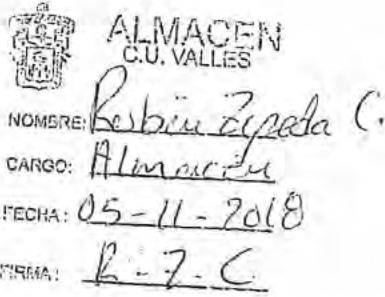 ALMACEN
C.U. VALLES
NOMBRE: Rosbiu Zepeda C.
CARGO: Almacén
FECHA: 05-11-2018
FIRMA: R-Z.C